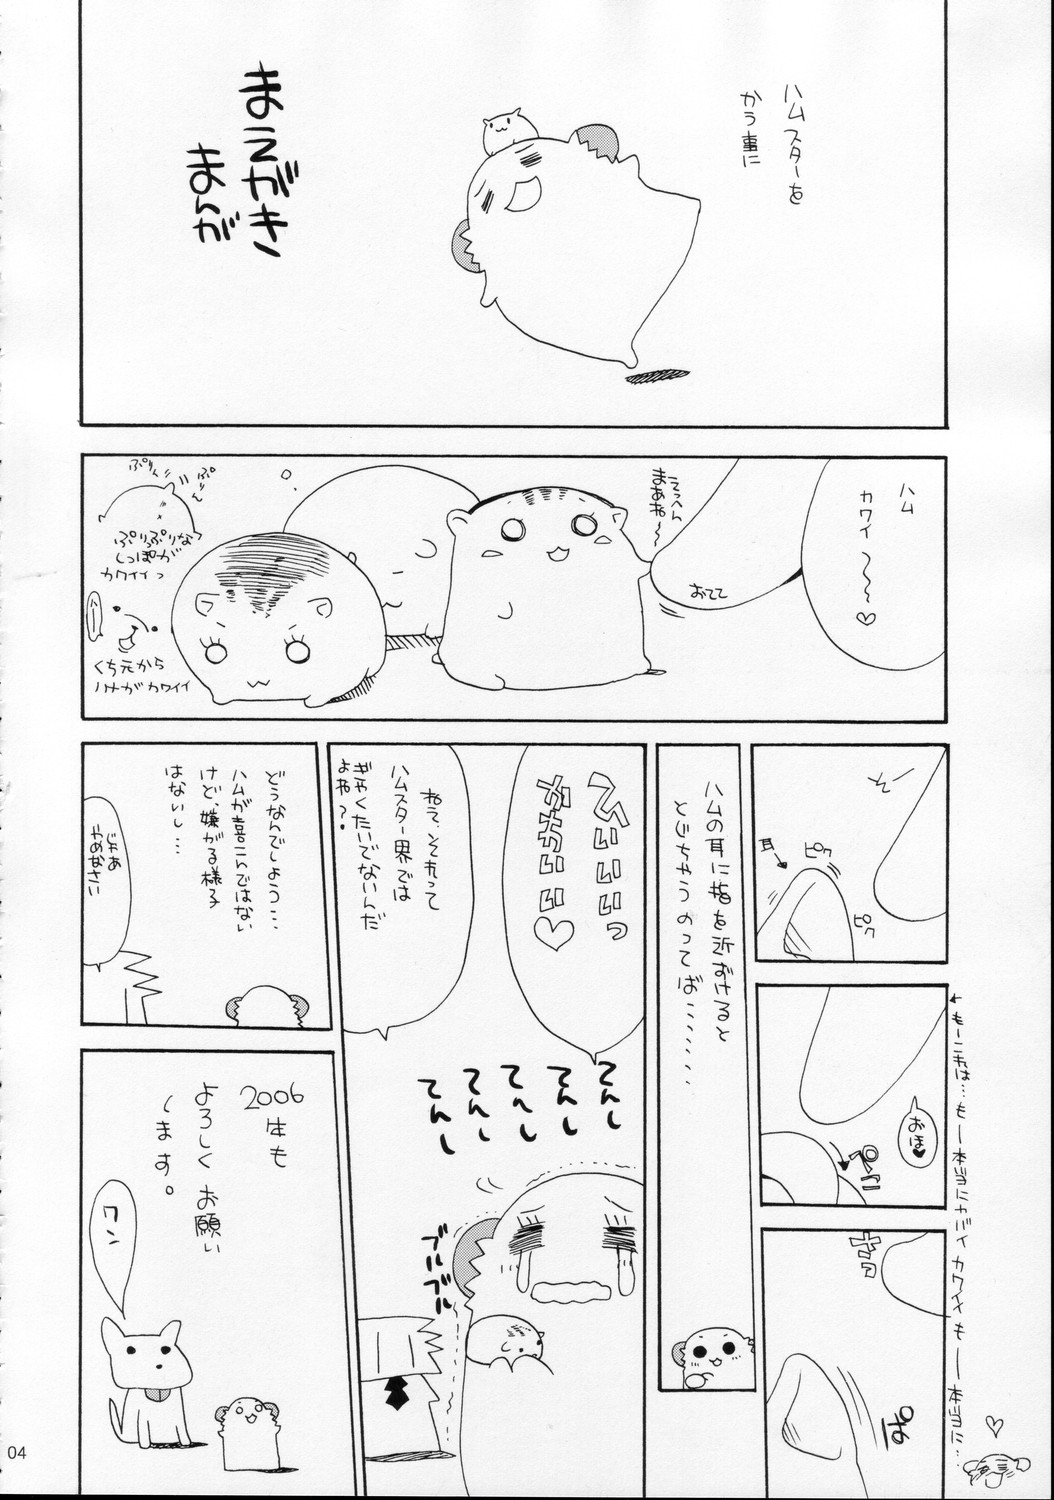 ハムスターを
かう事に
まえがき
まんが
ハム
カワイ～～♡
てっへん
まあね～
おてて
ぷりん
ぷりん
ぷりっぷりな
しっぽが
カワイイっ
くち元から
ハナがカワイイ
耳
ピク
ピク
←もーこれは…もー本当にヤバイカワイイもー本当に…
おほ♥
ペコ
ハムの耳に指を近ずけると
とじちゃうのってば………
ねえ、それって
ハムスター界では
ぎゃくたいでないんだ
よね？
てんし
てんし
てんし
てんし
てんし
ブルブル
ブルブル
どうなんでしょう…
ハムが喜こんではない
けど、嫌がる様子
はないし…
じゃあ
やめなさい
2006
年も
よろしくお願い
します。
ワン
04